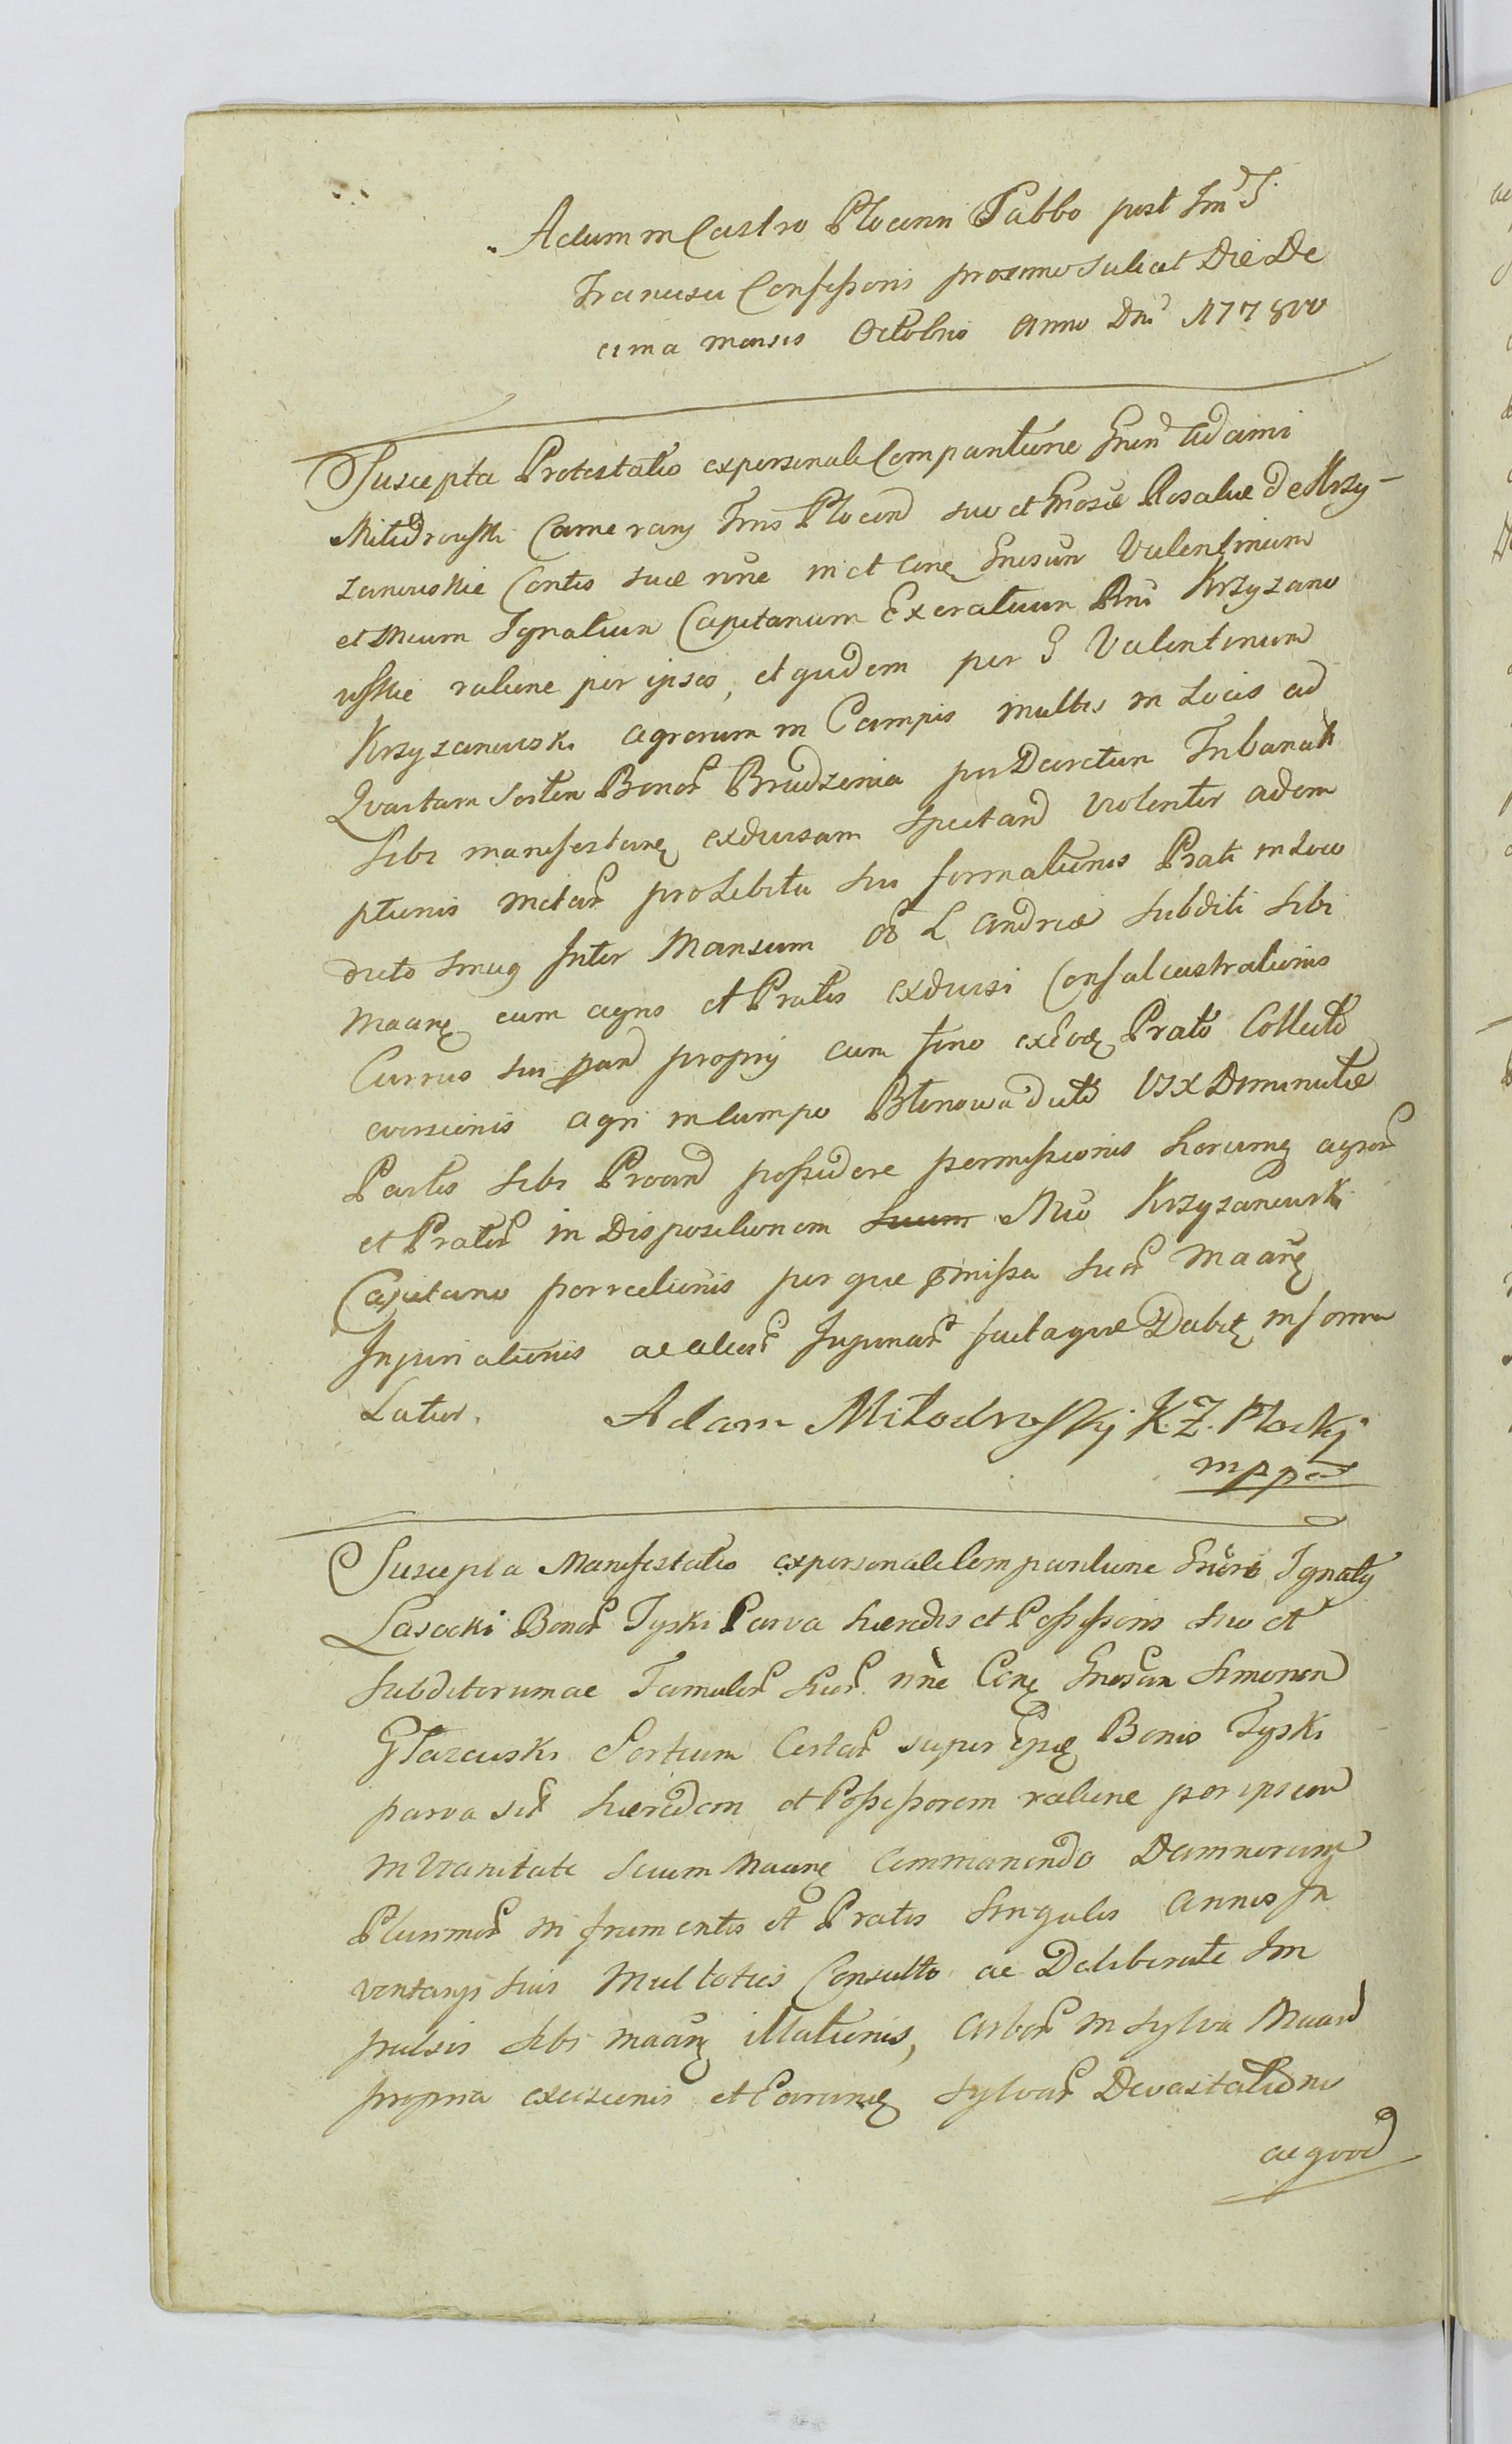 Actum in Castro Plocenn Sabbo post Fm S.
Francisci Confessoris proximo Scilicet Die De
cima mensis Octobris Anno Dni 1778vo
Suscepta Protestatio ex personali Comparitione Gnen Adami
Miłodrowski Camerarij Trris Plocens suo et Gnosae Rosaliae de Krzy-
zanowskie Contis suae nne in et Cone Gnosum Valentinum
et Mcum Ignatium Capitanum Exercituum Rni Krzyzano
wskie ratione per ipsos, et quidem per G Valentinum
Krzyzanowski agrorum in Campis multis in Locis ad
Quartam Sortem Bonor Brudzenia per Decretum Tribunali
Sibi manifestanq exdivisam Spectand violenter adem
ptionis metar prohibita sui formationis Prati in Loco
dicto Smug Inter Mansum L Andreae Subditi Sibi
Maanq cum agris et Pratis exdivisi Confalcastrationis
Currus sui propry cum feno Prato Collecto
eversionis agri in Campo Błonowa dicto Diminutae
Partis Sibi possidere permissionis horumq agror
et Prator in Dispositionem Suum Mco Krzyzanowski
Capitano porrectionis per que pmissa Suor Maanq
Injuriationis ac alior Injuriar factaque Dabitq in forma
Latior.
Adam Miłodroski K. Z. Płocki
mppa
Suscepta Manifestatio ex personali Comparitione Gnosi Ignaty
Lasocki Bonor Tyski Parva haeredis et Possessoris Suo et
Subditorum ac Famulor Suor nne Conq Gnosum Simonem
Głazewski Sortium Certar super Bonis Tyski
parva haeredem et Possessorem ratione per ipsum
in Vicinitate Suum Maanq Commanendo Damnorumq
Plurimor in frumentis et Pratis Singulis Annis In
ventarys Suis Multoties Consulto ac Deliberate Im
pulsis Sibi maanq illationis, Arbor in Sylva Maand
propria excisionis et Sylvar Devastationis
ac quod